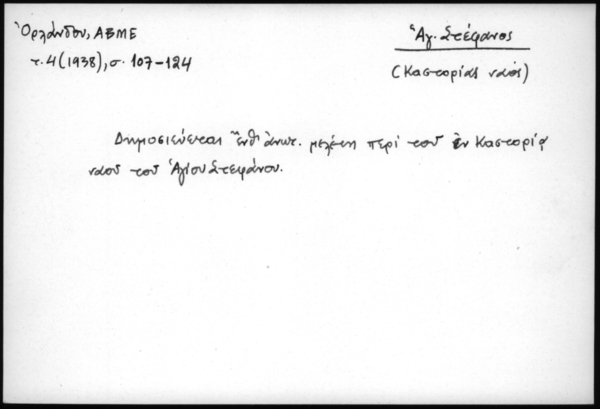 Ὀρλάνδου, ΑΒΜΕ
τ. 4 (1938), σ. 107-124
Ἁγ. Στέφανος
(Καστοριάς ναός)
Δημοσιεύεται ἔνθ' ἀνωτ. μελέτη περὶ τοῦ ἐν Καστορίᾳ
ναοῦ τοῦ Ἁγίου Στεφάνου.